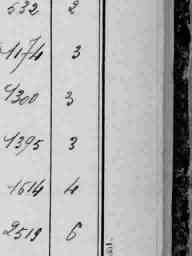 532 2
1174 3
1300 3
1395 3
1614 4
2519 6